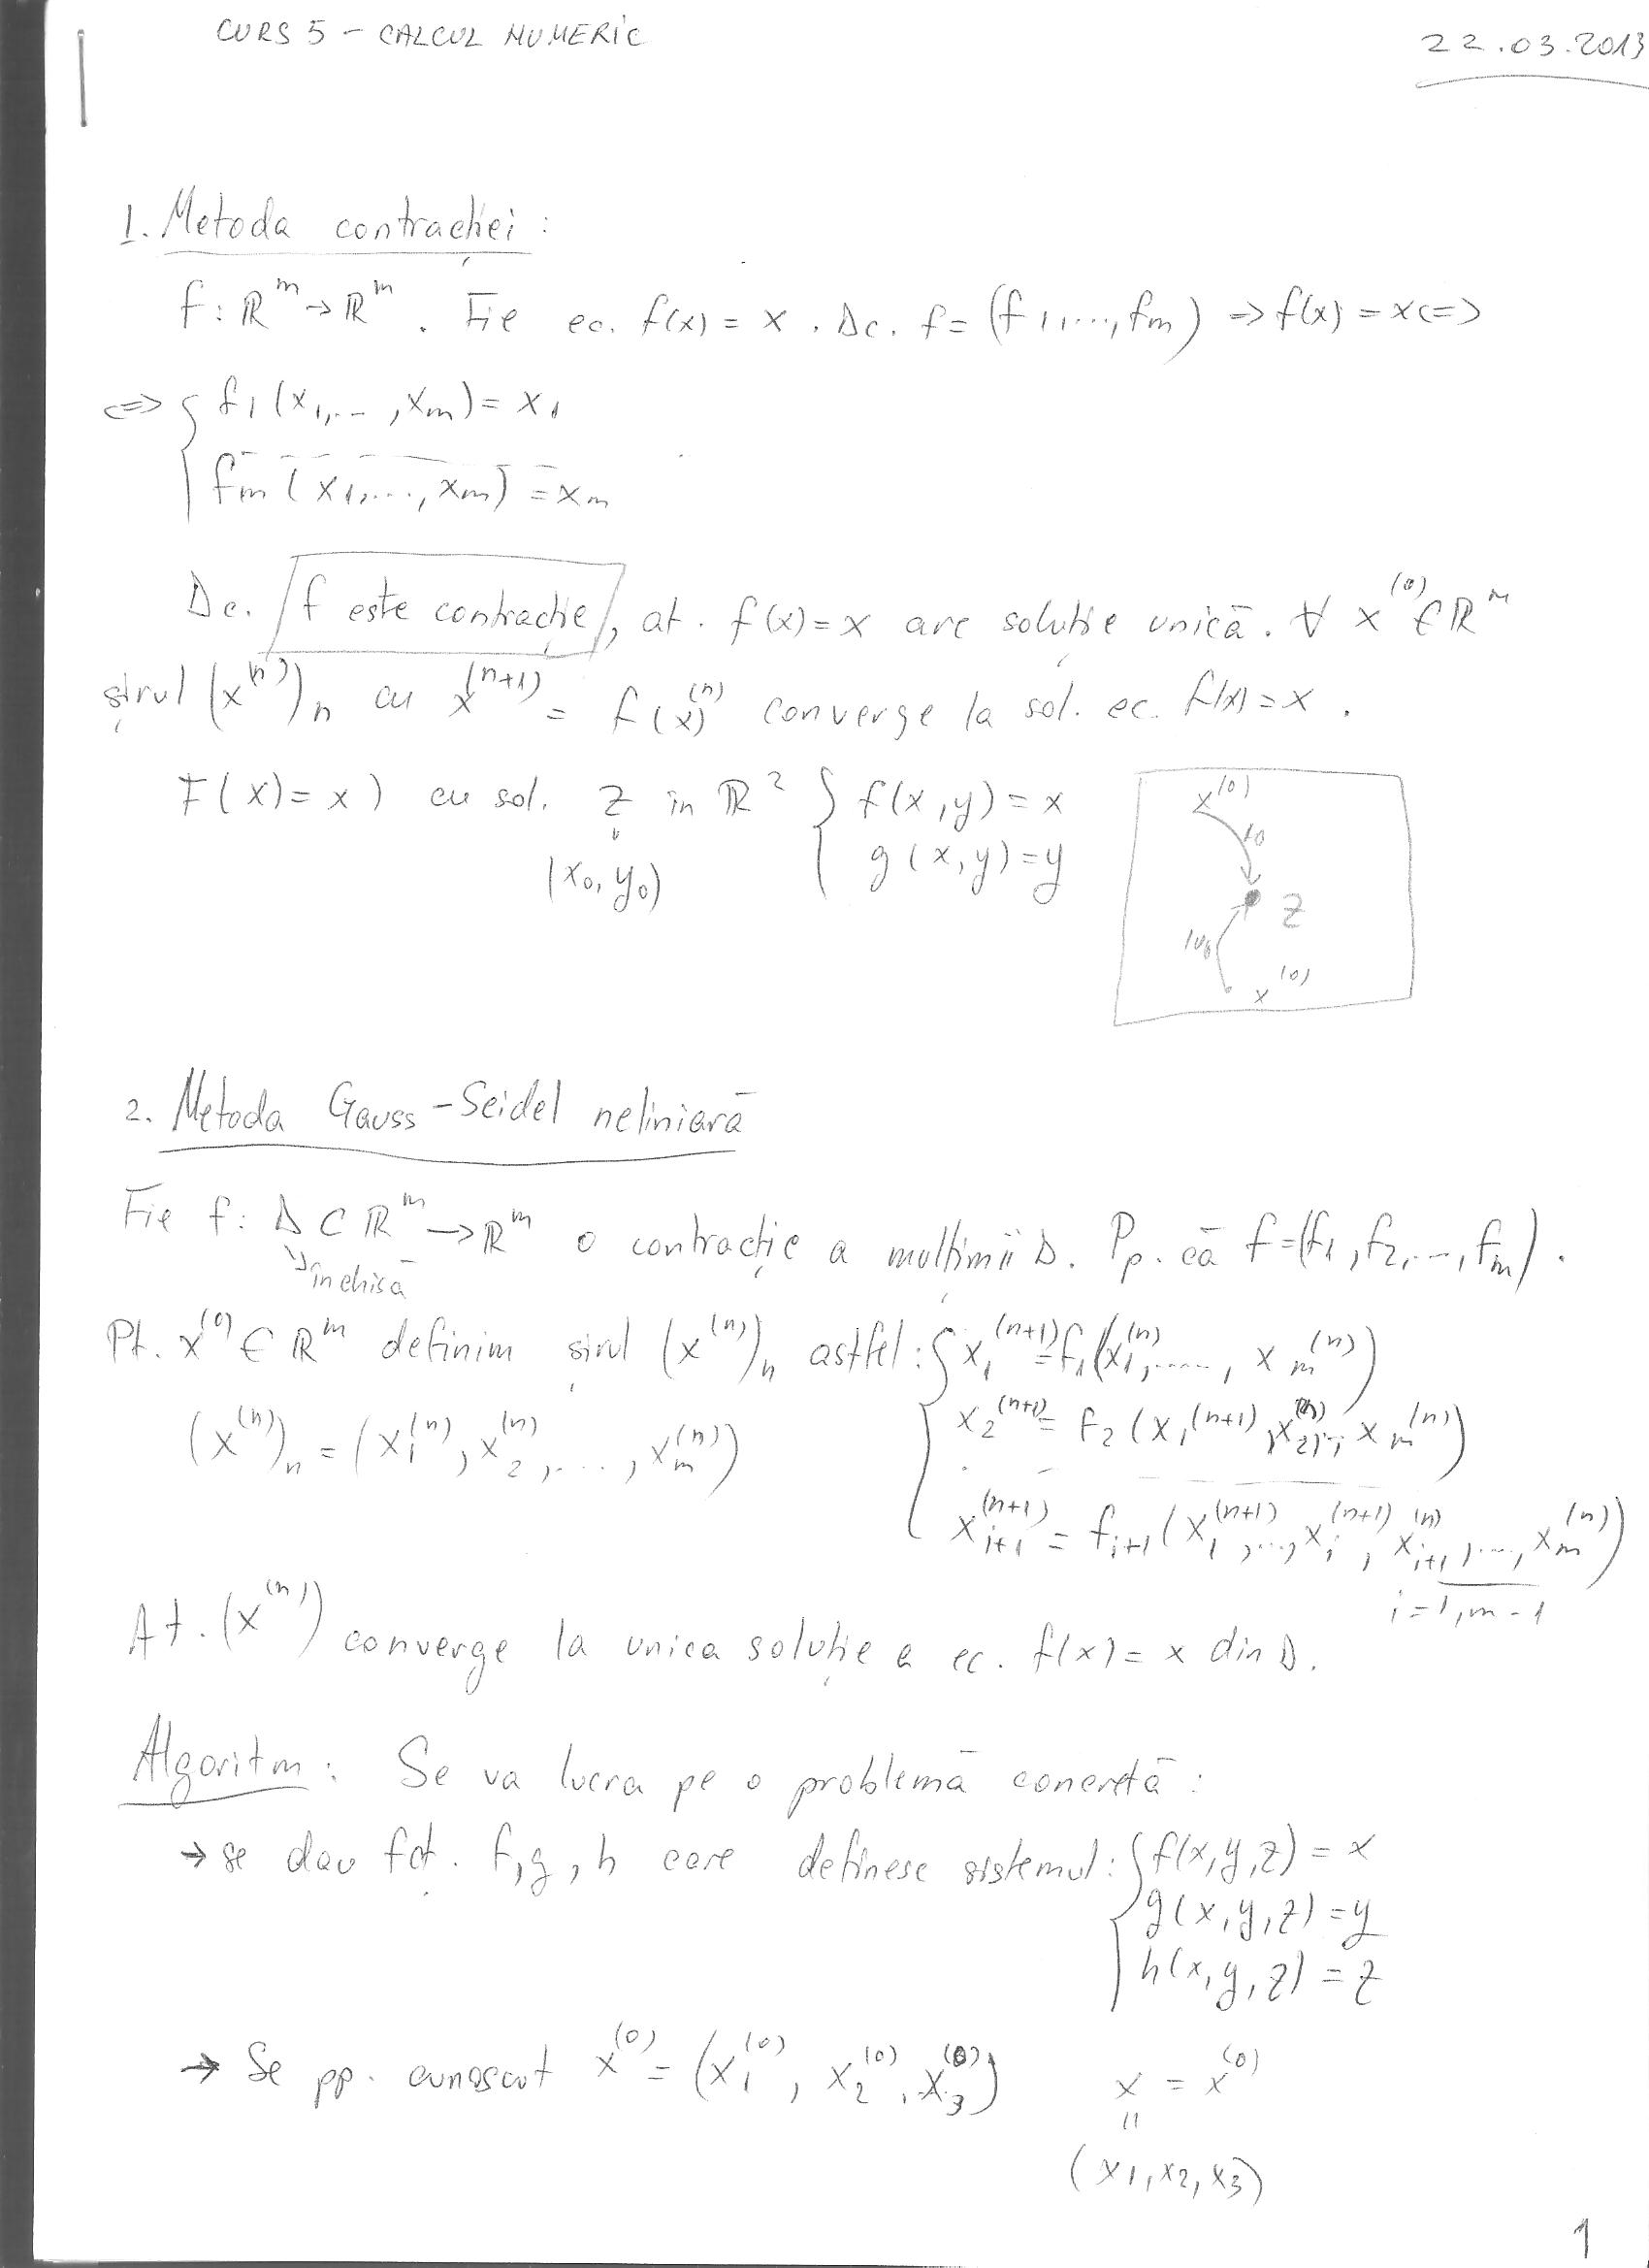 CURS 5 - CALCUL NUMERIC
22.03.2013
1. Metoda contracției:
f: ℝᵐ → ℝᵐ. Fie ec. f(x) = x. Dc. f = (f₁,...,fₘ) ⇒ f(x) = x <=>
<=> { f₁(x₁,...,xₘ) = x₁
fₘ(x₁,...,xₘ) = xₘ
Dc. f este contracție, at. f(x) = x are soluție unică. ∀ x⁽⁰⁾ ∈ ℝᵐ
șirul (x⁽ⁿ⁾)ₙ cu x⁽ⁿ⁺¹⁾ = f(x⁽ⁿ⁾) converge la sol. ec. f(x) = x.
F(x) = x) cu sol. z în ℝ² { f(x,y) = x
g(x,y) = y
(x₀, y₀)
x⁽⁰⁾
z
x⁽⁰⁾
2. Metoda Gauss-Seidel neliniară
Fie f: D ⊂ ℝᵐ → ℝᵐ o contracție a mulțimii D. Pp. că f = (f₁, f₂,..., fₘ).
închisă
Pt. x⁽⁰⁾ ∈ ℝᵐ definim șirul (x⁽ⁿ⁾)ₙ astfel: { x₁⁽ⁿ⁺¹⁾ = f₁(x₁⁽ⁿ⁾,....., xₘ⁽ⁿ⁾)
x₂⁽ⁿ⁺¹⁾ = f₂(x₁⁽ⁿ⁺¹⁾, x₂⁽ⁿ⁾,.., xₘ⁽ⁿ⁾)
(x⁽ⁿ⁾)ₙ = (x₁⁽ⁿ⁾, x₂⁽ⁿ⁾,...., xₘ⁽ⁿ⁾)
xᵢ₊₁⁽ⁿ⁺¹⁾ = fᵢ₊₁(x₁⁽ⁿ⁺¹⁾,..., xᵢ⁽ⁿ⁺¹⁾, xᵢ₊₁⁽ⁿ⁾,...., xₘ⁽ⁿ⁾)
i = 1,m-1
At. (x⁽ⁿ⁾) converge la unica soluție a ec. f(x) = x din D.
Algoritm: Se va lucra pe o problemă concretă:
→ se dau fcț. f, g, h care definesc sistemul: { f(x,y,z) = x
g(x,y,z) = y
h(x,y,z) = z
→ Se pp. cunoscut x⁽⁰⁾ = (x₁⁽⁰⁾, x₂⁽⁰⁾, x₃⁽⁰⁾) x = x⁽⁰⁾
(x₁, x₂, x₃)
1